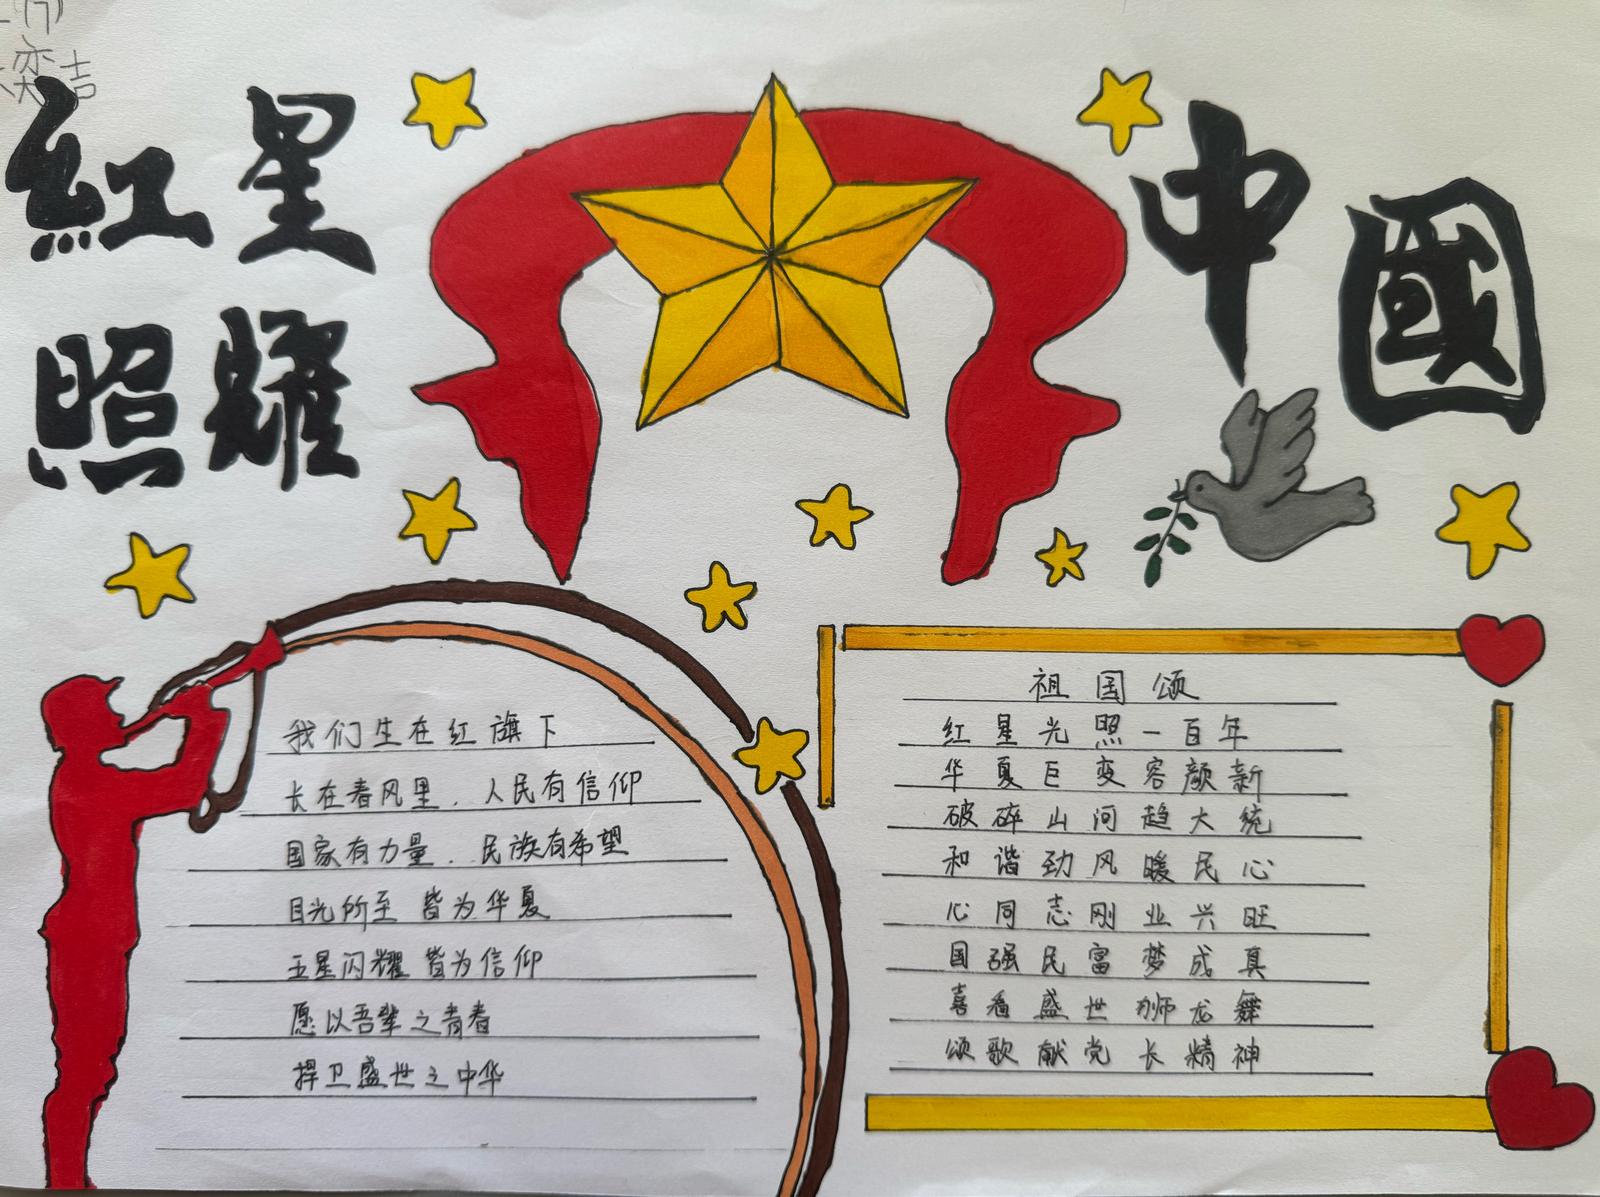 奕吉
红星
照耀
中國
我们生在红旗下
长在春风里．人民有信仰
国家有力量．民族有希望
目光所至 皆为华夏
五星闪耀 皆为信仰
愿以吾辈之青春
捍卫盛世之中华
祖国颂
红星光照一百年
华夏巨变容颜新
破碎山河趋大统
和谐劲风暖民心
心同志刚业兴旺
国强民富梦成真
喜看盛世狮龙舞
颂歌献党长精神